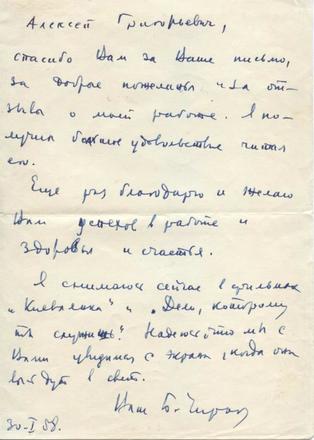 Алексей Григорьевич,
спасибо Вам за Ваше письмо,
за добрые пожеланья и за от-
зывы о моей работе. Я по-
лучил большое удовольствие читая
его.
Еще раз благодарю и желаю
Вам успехов в работе и
здоровья и счастья.
Я снимаюсь сейчас в фильмах
„Киевлянка" и „Дело, которому
ты служишь." Надеюсь, что мы с
Вами увидимся с экрана, когда они
выйдут в свет.
Ваш Б. Чирков
30-I 58.